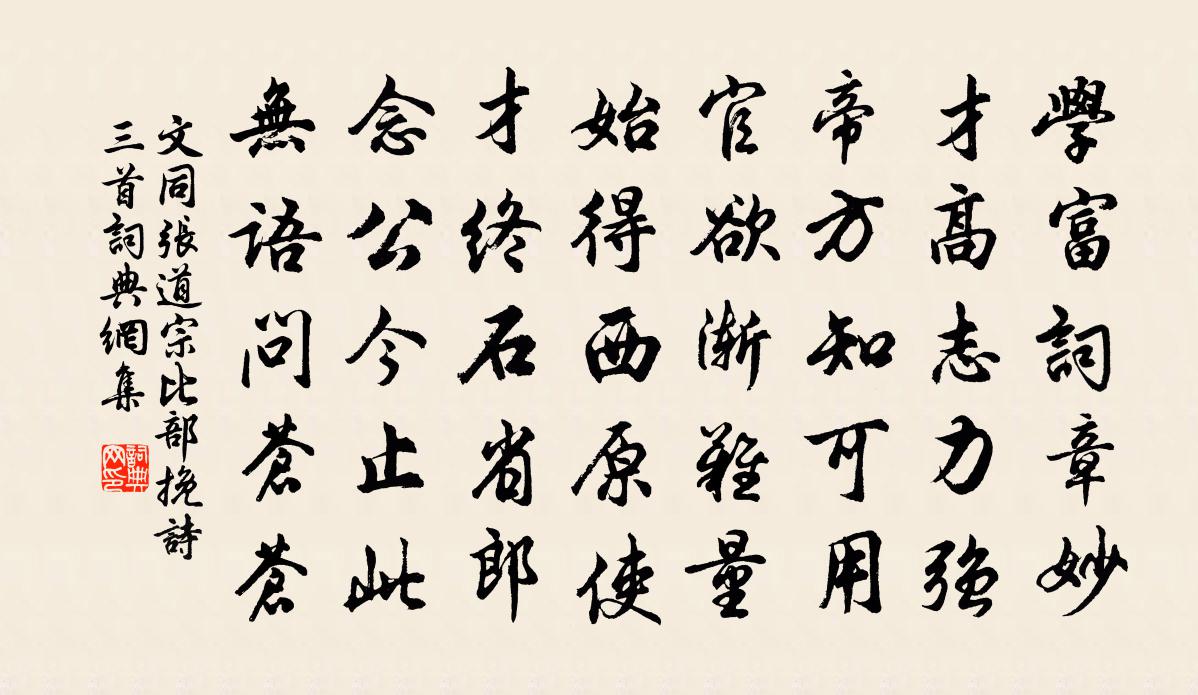 學富詞章妙
才高志力強
帝方知可用
官欲漸難量
始得西原使
才終石省郎
念公今止此
無語問蒼蒼
文同張道宗比部挽詩
三首詞典網集
詞典
网印